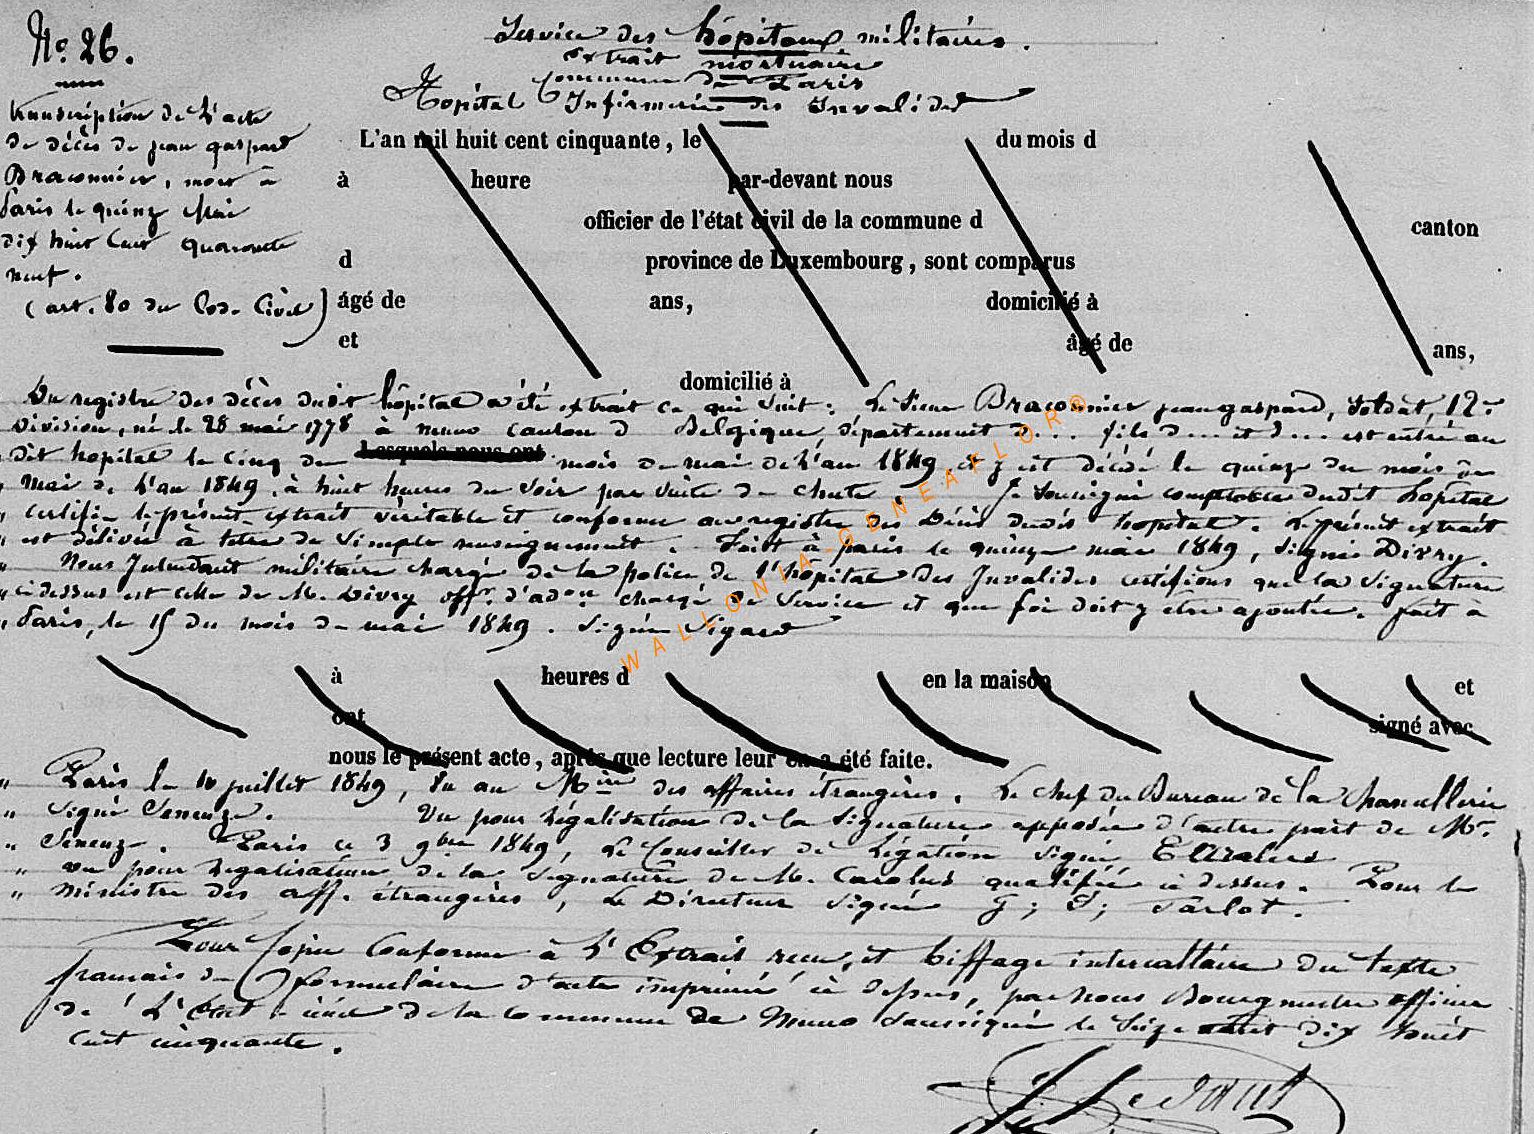 N.º 26.
Transcription de l'acte
de décès de jean gaspard
Braconnier, mort à
Paris le quinze Mai
dix huit Cent quarante
neuf.
(art. 80 du Code Civil)
Service des hôpitaux militaires.
Extrait mortuaire
Commune de Paris
Hopital Infirmerie des Invalides
L'an mil huit cent cinquante, le du mois d
à heure par-devant nous
officier de l'état civil de la commune d canton
d province de Luxembourg, sont comparus
âgé de ans, domicilié à
et âgé de ans,
domicilié à
Du registre des décès dudit hôpital a été extrait ce qui suit : Le Sieur Braconnier jean gaspard, Soldat, 12e
Division, né le 28 mai 1778 à muno canton d Belgique, département d... fils d... et d... est entré au
dit hopital le cinq du Lesquels nous ont mois de mai de l'an 1849, et y est décédé le quinze du mois de
" Mai de l'an 1849, à huit heures du soir par suite de chute. Je soussigné comptable dudit hopital
" certifie le présent extrait véritable et conforme au registre des Décès dudit hopital. Le présent extrait
" est délivré à titre de simple renseignement. Fait à paris le quinze mai 1849, signé Divry.
" Nous Intendant militaire chargé de la police de l'hôpital des Invalides certifions que la signature
" cidessus est celle de M. Divry offr. d'adon chargé de service et que foi doit y être ajoutée. fait à
" Paris, le 15 du mois de mai 1849. signé Vigard
à heures d en la maison et
ont signé avec
nous le présent acte, après que lecture leur en a été faite.
" Paris le 10 juillet 1849, Vu au Mire des affaires étrangères. Le chef du Bureau de la Chancellerie
" signé . Vu pour légalisation de la signature apposée d'autre part de Mr.
" . Paris ce 3 9bre 1849, Le Conseiller de Légation signé
" vu pour legalisation de la signature de M. Carolus qualifié ci dessus. Pour le
" ministre des aff. étrangères, Le Directeur signé
Pour Copie Conforme à l'Extrait reçu, et biffage intercallaire du texte
français du formulaire d'acte imprimé ci dessus, par Nous Bourgmestre officier
de l'Etat-civil de la commune de Muno soussigné le Seize dix huit
cent cinquante.